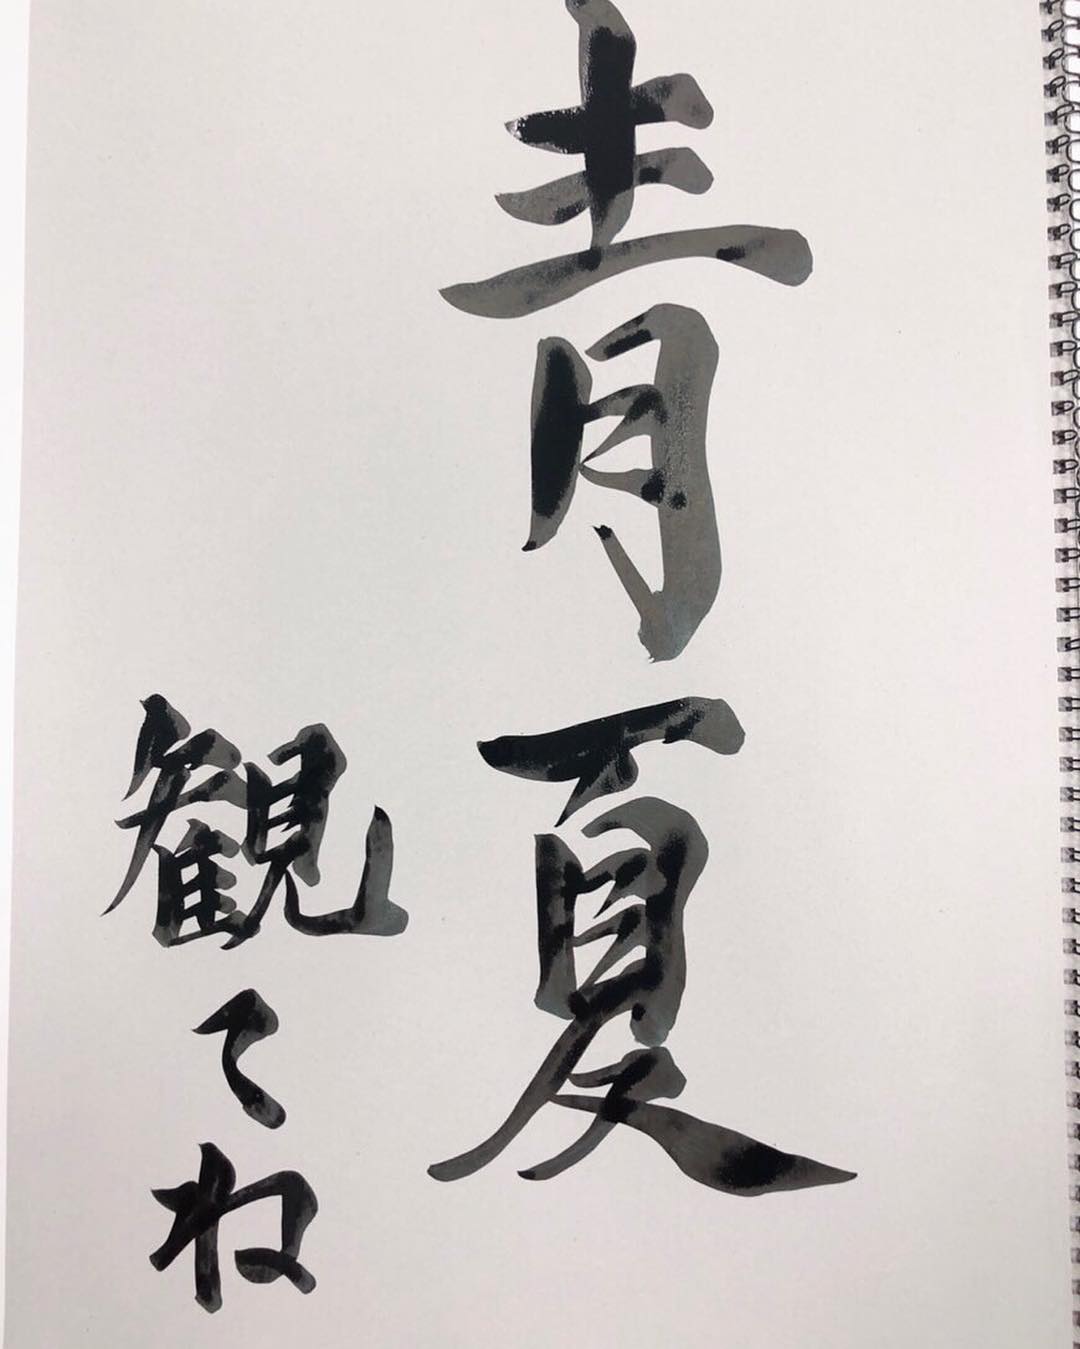 青夏
観てね